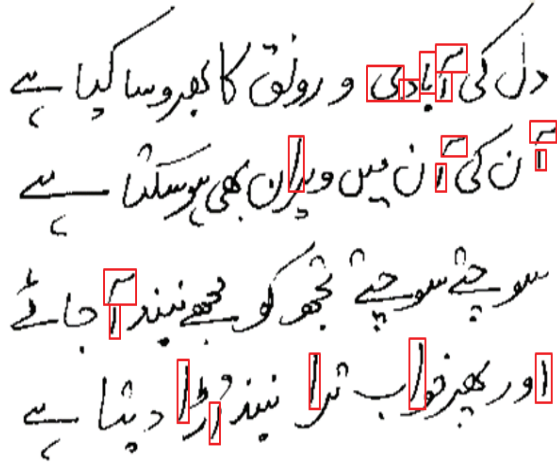 دل کی آبادی و رونق کا بھروسا کیا ہے
آن کی آن میں ویران بھی ہوسکتا ہے
سوچتے سوچتے تجھ کو مجھے نیند آ جائے
اور پھر خواب ترا نیند اُڑا دیتا ہے